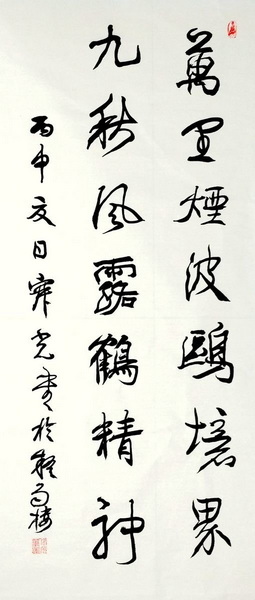 萬里煙波鷗境界
九秋風露鶴精神
丙申夏日光書於雨樓